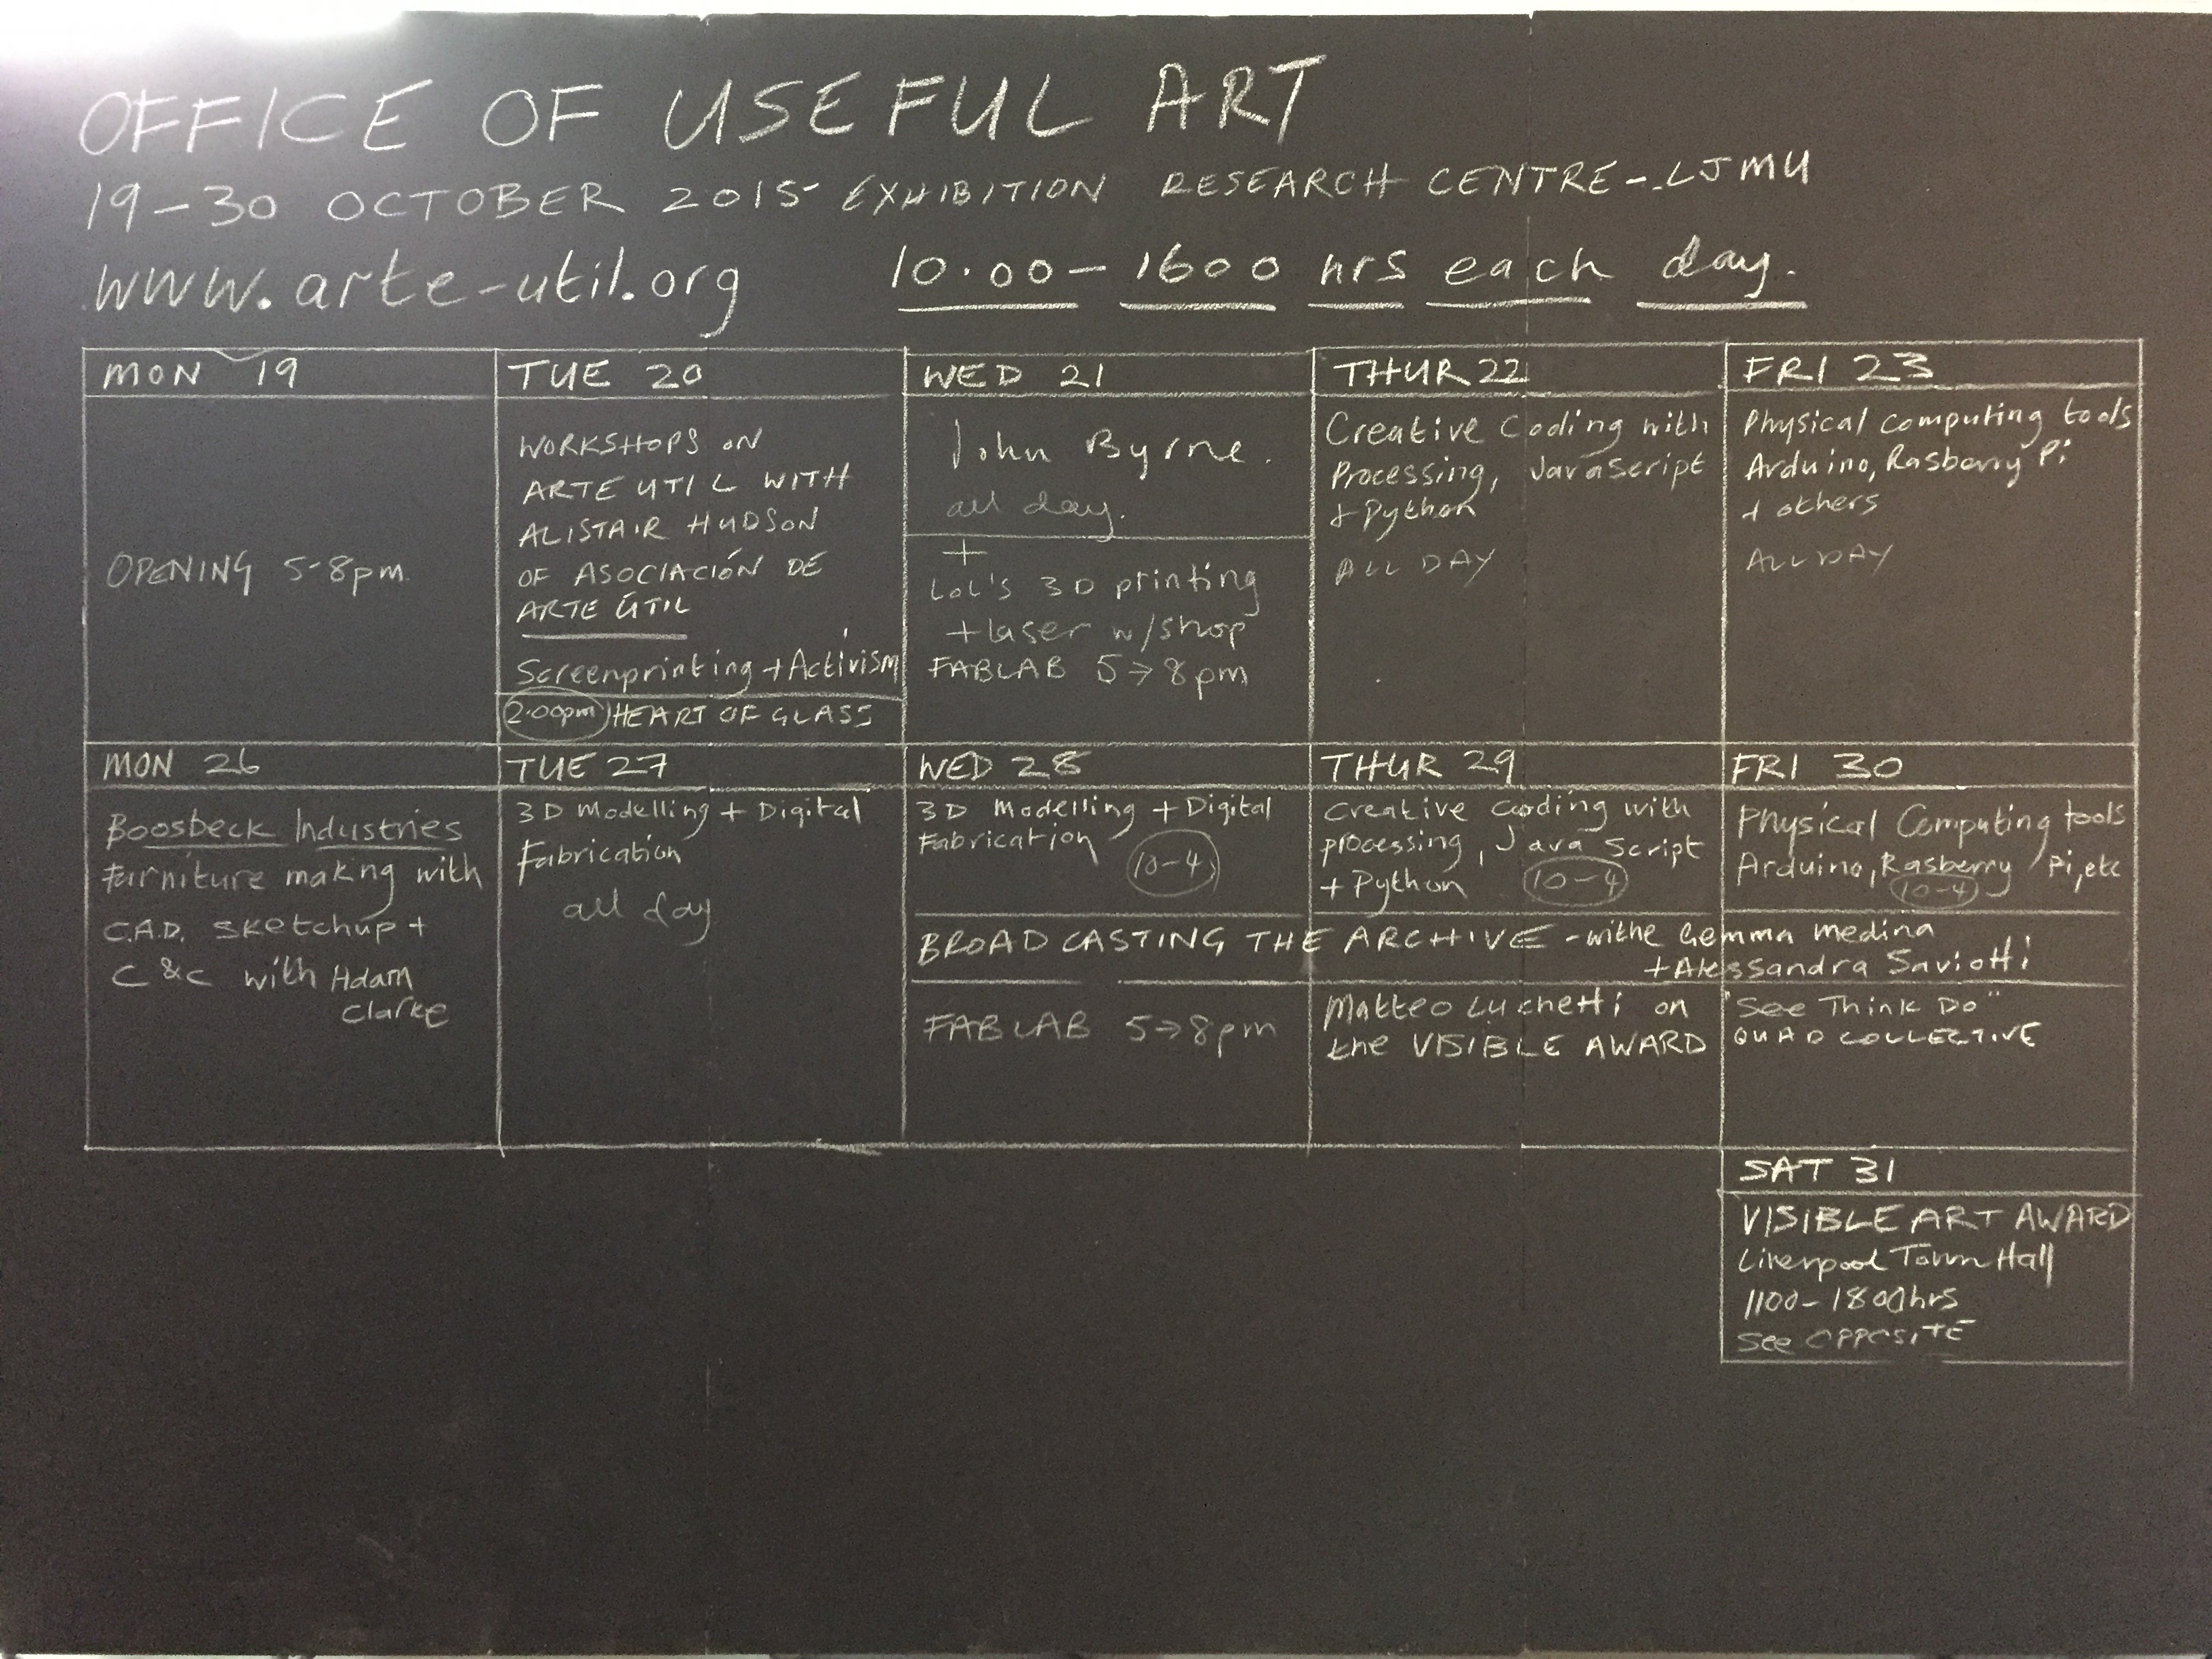 OFFICE OF USEFUL ART
19-30 OCTOBER 2015 EXHIBITION RESEARCH CENTRE - LJMU
www.arte-util.org 10.00-1600 hrs each day.
MON 19
OPENING 5-8pm.
TUE 20
WORKSHOPS ON
ARTE UTIL WITH
ALISTAIR HUDSON
OF ASOCIACIÓN DE
ARTE ÚTIL
Screenprinting + Activism
2.00pm HEART OF GLASS
WED 21
John Byrne.
all day.
+
LoL's 3D printing
+ laser w/shop
FABLAB 5→8pm
THUR 22
Creative Coding with
Processing, JavaScript
+ Python
ALL DAY
FRI 23
Physical computing tools
Arduino, Rasberry Pi
+ others
ALL DAY
MON 26
Boosbeck Industries
Furniture making with
C.A.D. Sketchup +
C & C with Adam
Clarke
TUE 27
3D Modelling + Digital
Fabrication
all day
WED 28
3D Modelling + Digital
Fabrication
10-4
THUR 29
Creative coding with
processing, Java Script
+ Python 10-4
FRI 30
Physical Computing tools
Arduino, Rasberry Pi, etc
10-4
BROADCASTING THE ARCHIVE - withe Gemma Medina
+ Alessandra Saviotti
FABLAB 5→8pm
Matteo Luchetti on
the VISIBLE AWARD
"See Think Do"
QUAD COLLECTIVE
SAT 31
VISIBLE ART AWARD
Liverpool Town Hall
1100-1800hrs
See OPPOSITE